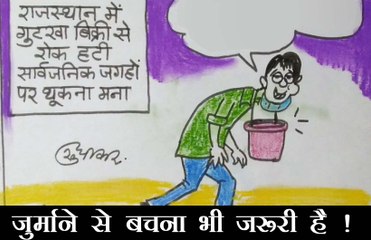 राजस्थान में
गुटखा बिक्री से
रोक हटी
सार्वजनिक जगहों
पर थूकना मना
सुधाकर
जुर्माने से बचना भी जरूरी है !